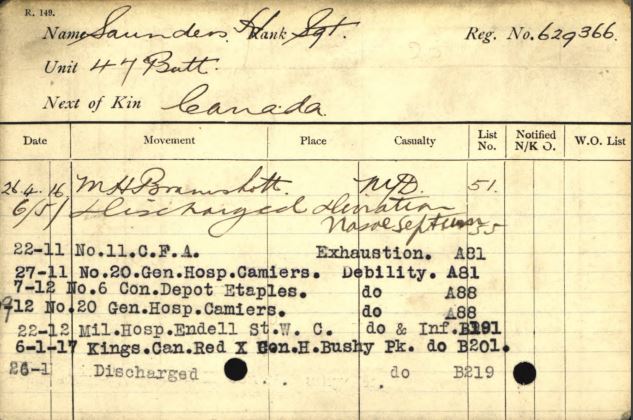 R. 149.
Name Saunders, H. Rank Sgt. Reg. No. 629366.
Unit 47 Batt.
Next of Kin Canada
Date Movement Place Casualty List No. Notified N/K O. W.O. List
26.4.16 M H Bramshott. N.Y.D. 51.
6/5/ Discharged Deviation
Nasal Septum 55
22-11 No.11.C.F.A. Exhaustion. A81
27-11 No.20.Gen.Hosp.Camiers. Debility. A81
7-12 No.6 Con.Depot Etaples. do A88
9-12 No.20 Gen.Hosp.Camiers. do A88
22-12 Mil.Hosp.Endell St.W. C. do & Inf.B191
6-1-17 Kings.Can.Red X Con.H.Bushy Pk. do B201.
26-1 Discharged do B219